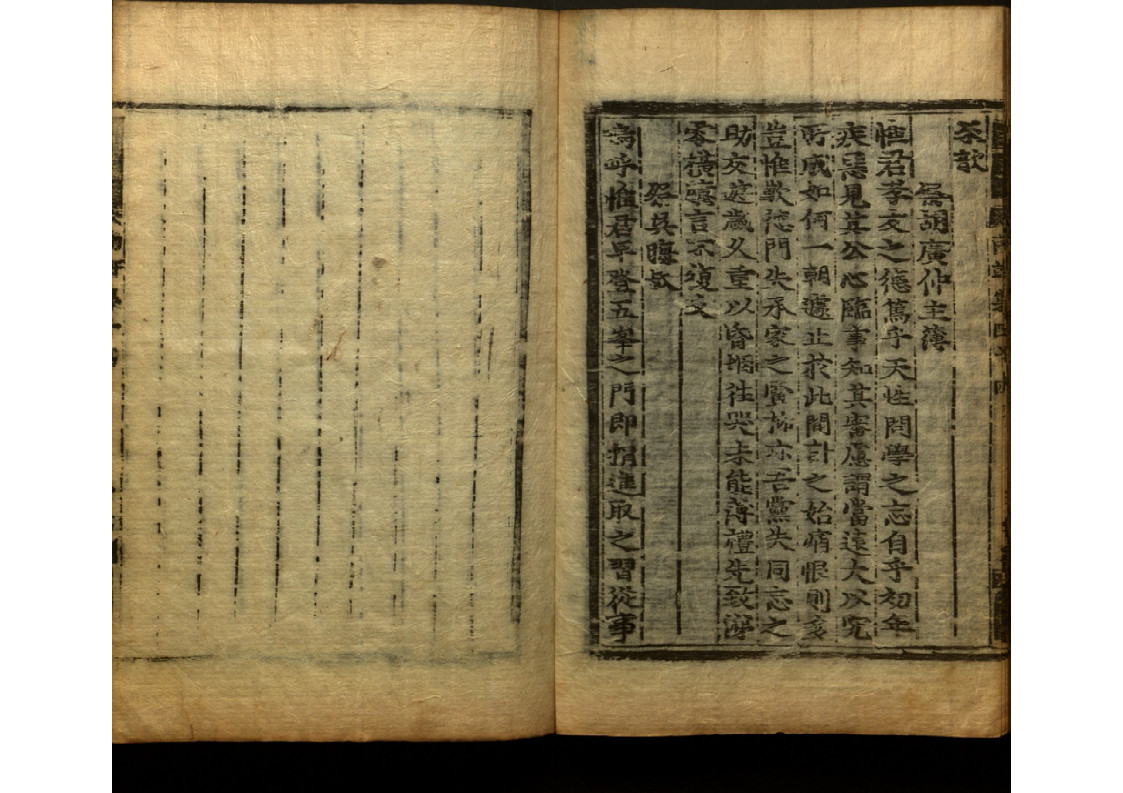 茶歆
祭胡廣仲主簿
惟君孝友之德篤乎天性問學之志自乎初年
疾惡見其公心臨事知其審慮謂當遠大以究
所成如何一朝遽止於此聞訃之始痛恨則多
豈惟歎德門失承家之賢抑亦吾黨失同志之
助交遊歲久重以昏婣往哭未能薄禮先致涕
零橫臆言不復文
祭吳晦叔
嗚呼惟君早登五峯之門即捐進取之習從事